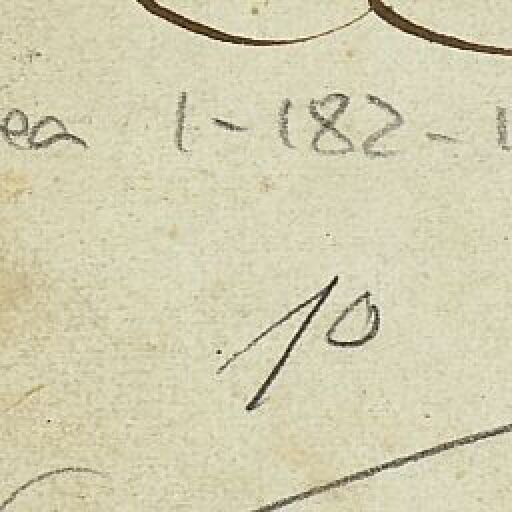 ea 1-182-1
10